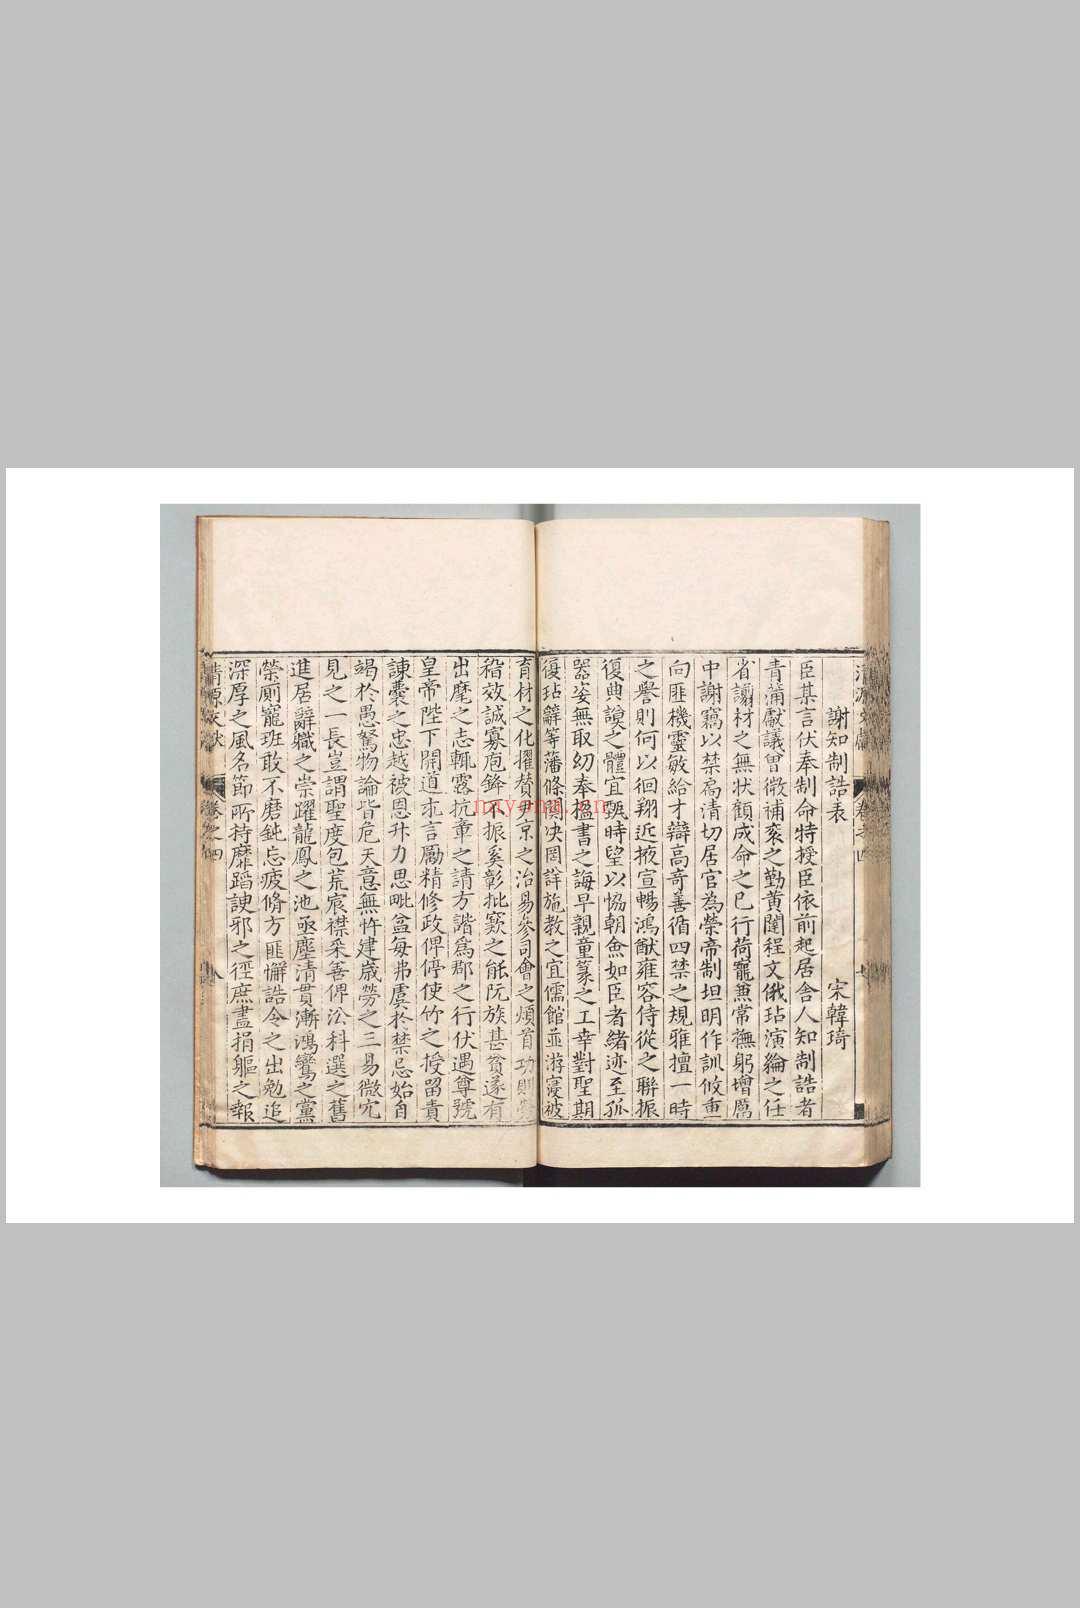 謝知制誥表
宋韓琦
臣某言伏奉制命特授臣依前起居舍人知制誥者
青蒲獻議曾微補袞之勤黃闥程文俄玷演綸之任
省謭材之無狀顧成命之已行荷寵兼常撫躬增厲
中謝竊以禁扃清切居官為榮帝制坦明作訓攸重
向匪機靈敏給才辯高奇善循四禁之規雅擅一時
之譽則何以徊翔近掖宣暢鴻猷雍容侍從之聯振
復典謨之體宜甄時望以恊朝僉如臣者緒迹至孤
器姿無取幼奉楹書之誨早親童篆之工幸對聖期
復玷辭等藩條関决罔詳施教之宜儒館並游寖被
育材之化擢贊尹京之治易參司會之煩首功則
稽效誠寡庖鋒不振奚彰批窾之能阮族甚貧遂有
出麾之志輒露抗章之請方諧為郡之行伏遇尊號
皇帝陛下開道求言勵精修政俾停使竹之授留責
諫囊之忠越被恩升力思毗益每弗虞於禁忌始自
竭於愚駑物論皆危天意無忤建歲勞之三易微宂
見之一長豈謂聖度包荒宸襟采善俾沿科選之舊
進居辭職之崇躍龍鳳之池亟塵清貫漸鴻鸞之黨
榮厠寵班敢不磨鈍忘疲脩方匪懈誥令之出勉追
深厚之風名節所持靡蹈諛邪之徑庶盡捐軀之報
卷之四
nayona.cn